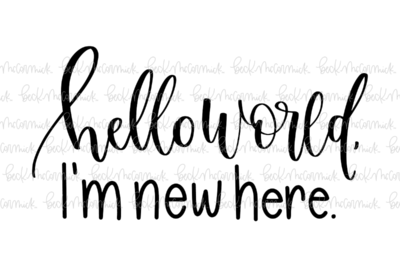 hello world,
I'm new here.